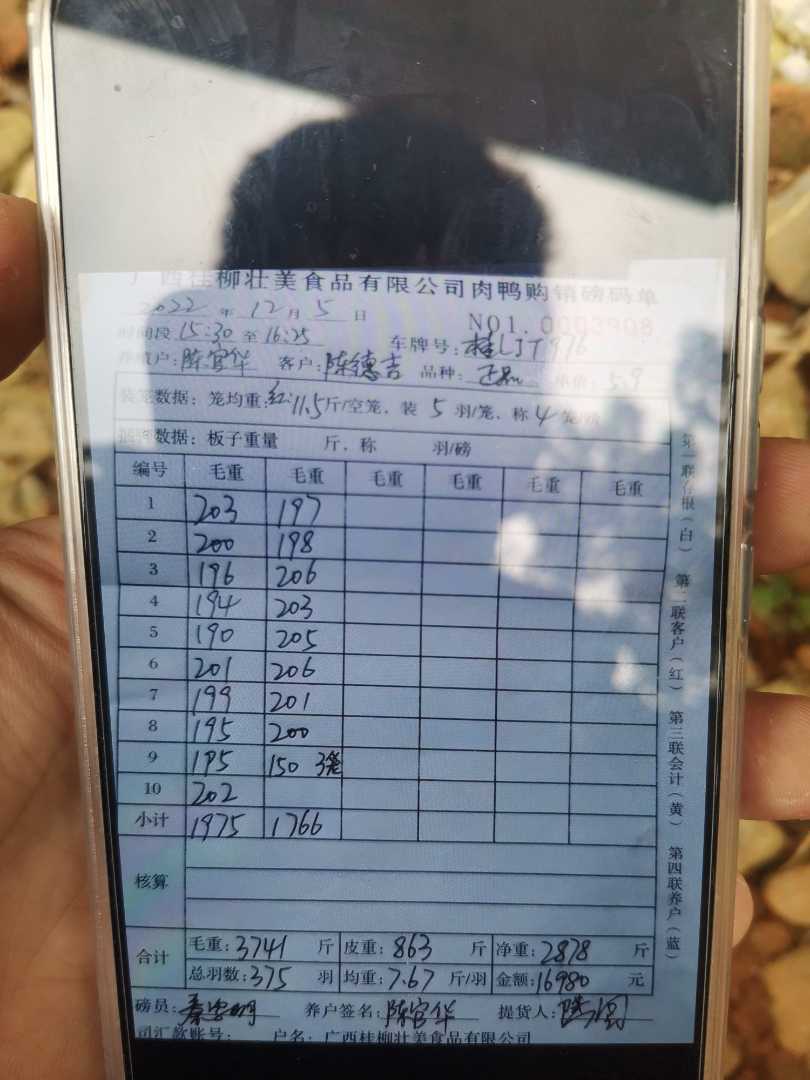 广西桂柳壮美食品有限公司肉鸭购销磅码单
2022 年 12 月 5 日 NO1.0003908
时间段 15:30 至 16:25 车牌号:桂LJT976
养殖户:陈官华 客户:陈德吉 品种: 单价:5.9
装笼数据:笼均重:红11.5斤/空笼、装 5 羽/笼、称 4 笼/磅
数据:板子重量 斤、称 羽/磅
编号 毛重 毛重 毛重 毛重 毛重 毛重
1 203 197
2 200 198
3 196 206
4 194 203
5 190 205
6 201 206
7 199 201
8 195 200
9 195 150 3笼
10 202
小计 1975 1766
核算
合计 毛重:3741 斤 皮重:863 斤 净重:2878 斤
总羽数:375 羽 均重:7.67 斤/羽 金额:16980 元
磅员: 养户签名:陈官华 提货人:
司汇款账号: 户名:广西桂柳壮美食品有限公司
第一联存根(白) 第二联客户(红) 第三联会计(黄) 第四联养户(蓝)